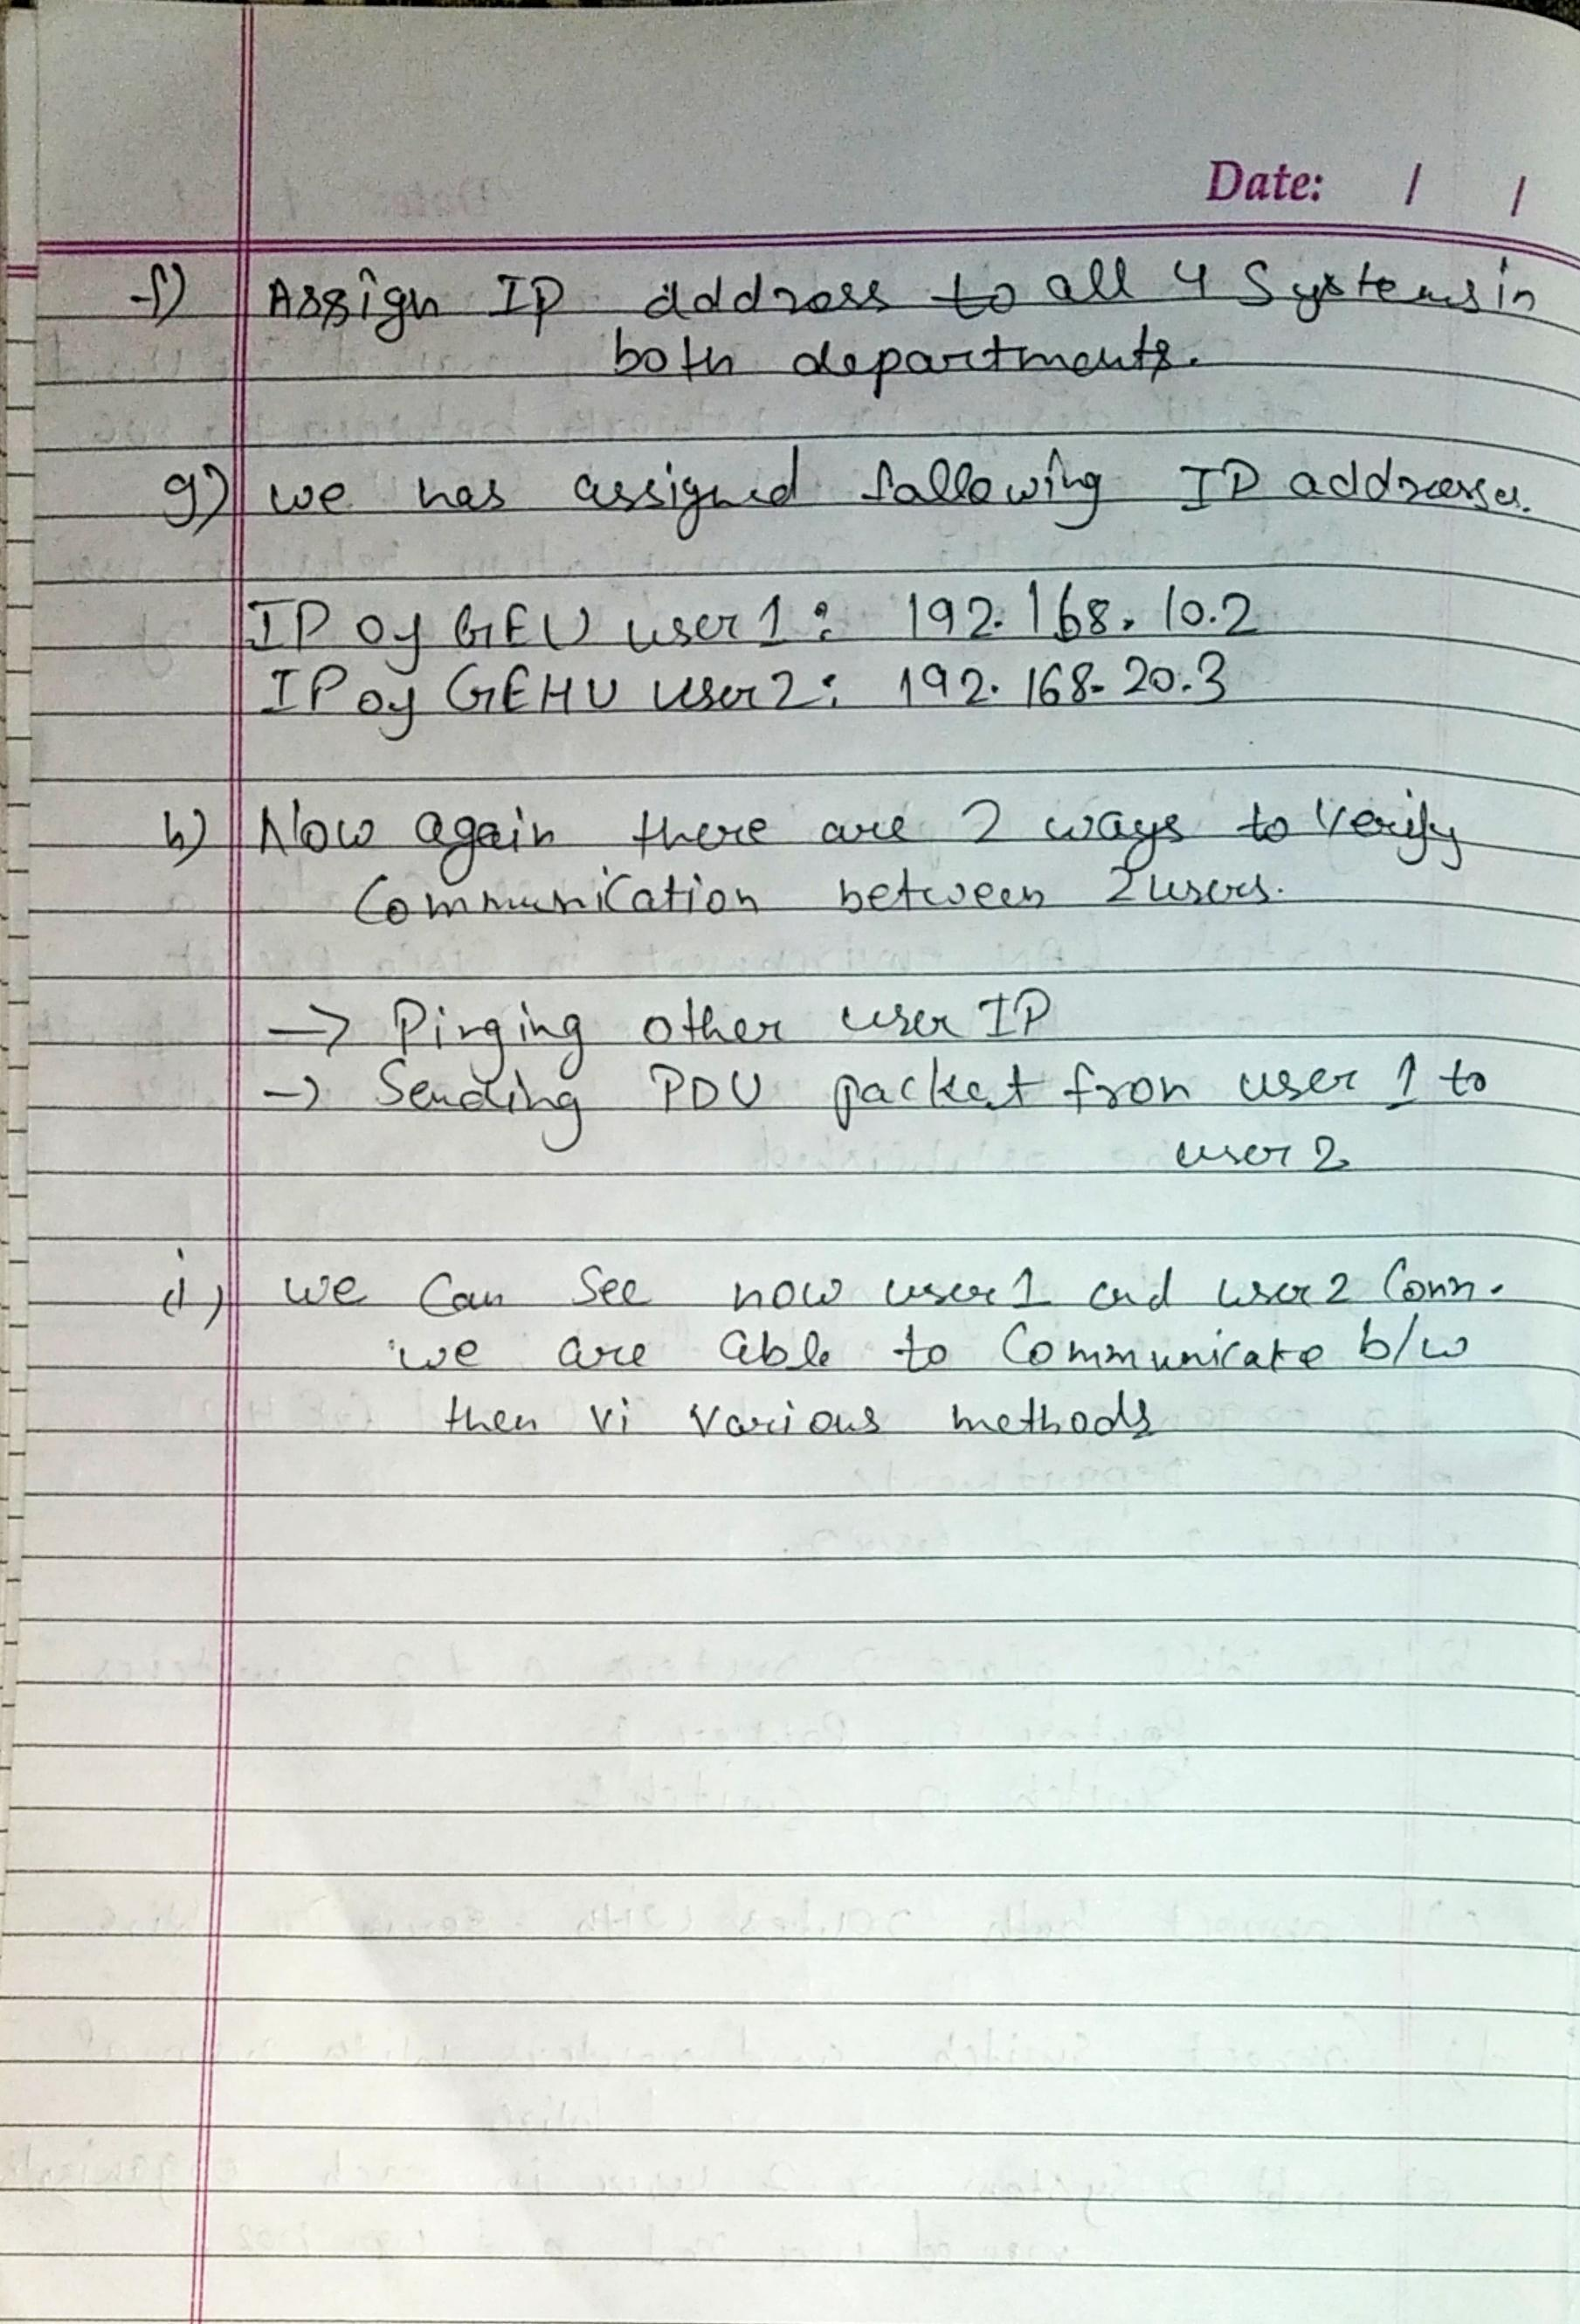 Date: / /
f) Assign IP address to all 4 Systems in
both departments.
g) we has assigned following IP addresses.
IP of GEU user 1: 192.168.10.2
IP of GEHU user 2: 192.168.20.3
h) Now again there are 2 ways to verify
Communication between 2 users.
-> Pinging other user IP
-> Sending PDU packet from user 1 to
user 2
i) we can see now user 1 and user 2 Conn.
we are able to Communicate b/w
then vi various methods